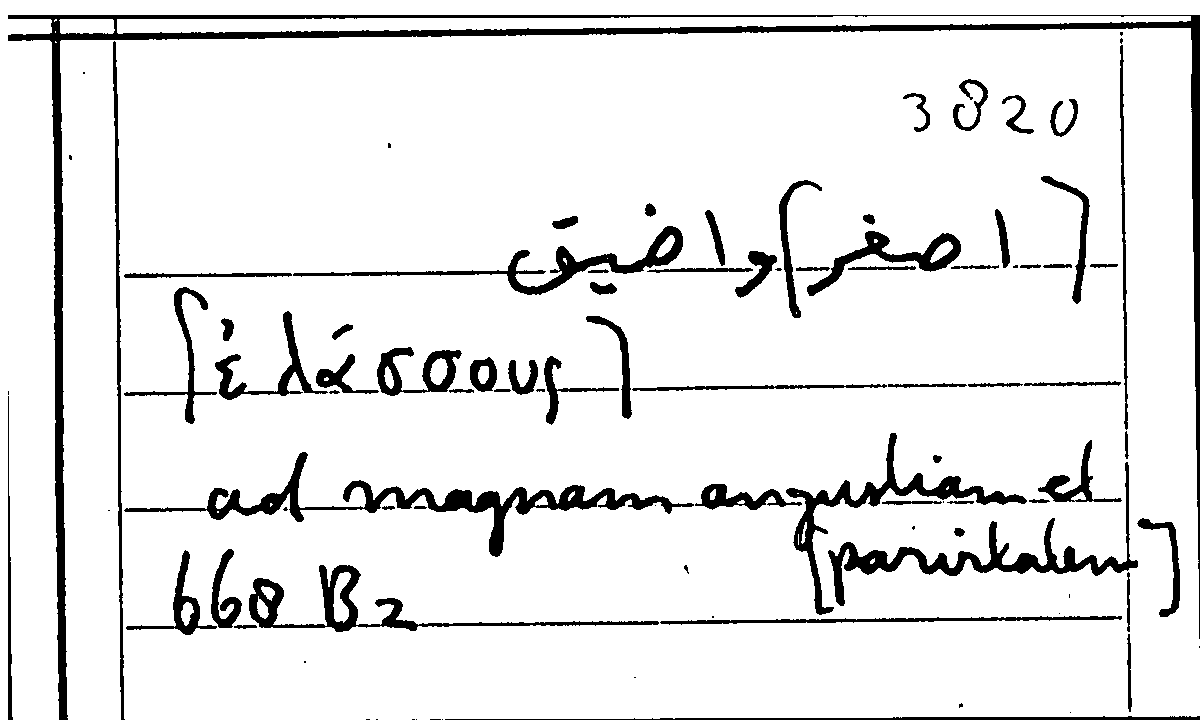 3820
[اصغر] واضيق
[ἐλάσσους]
ad magnam angustiam et
[parvitatem]
668 B 2